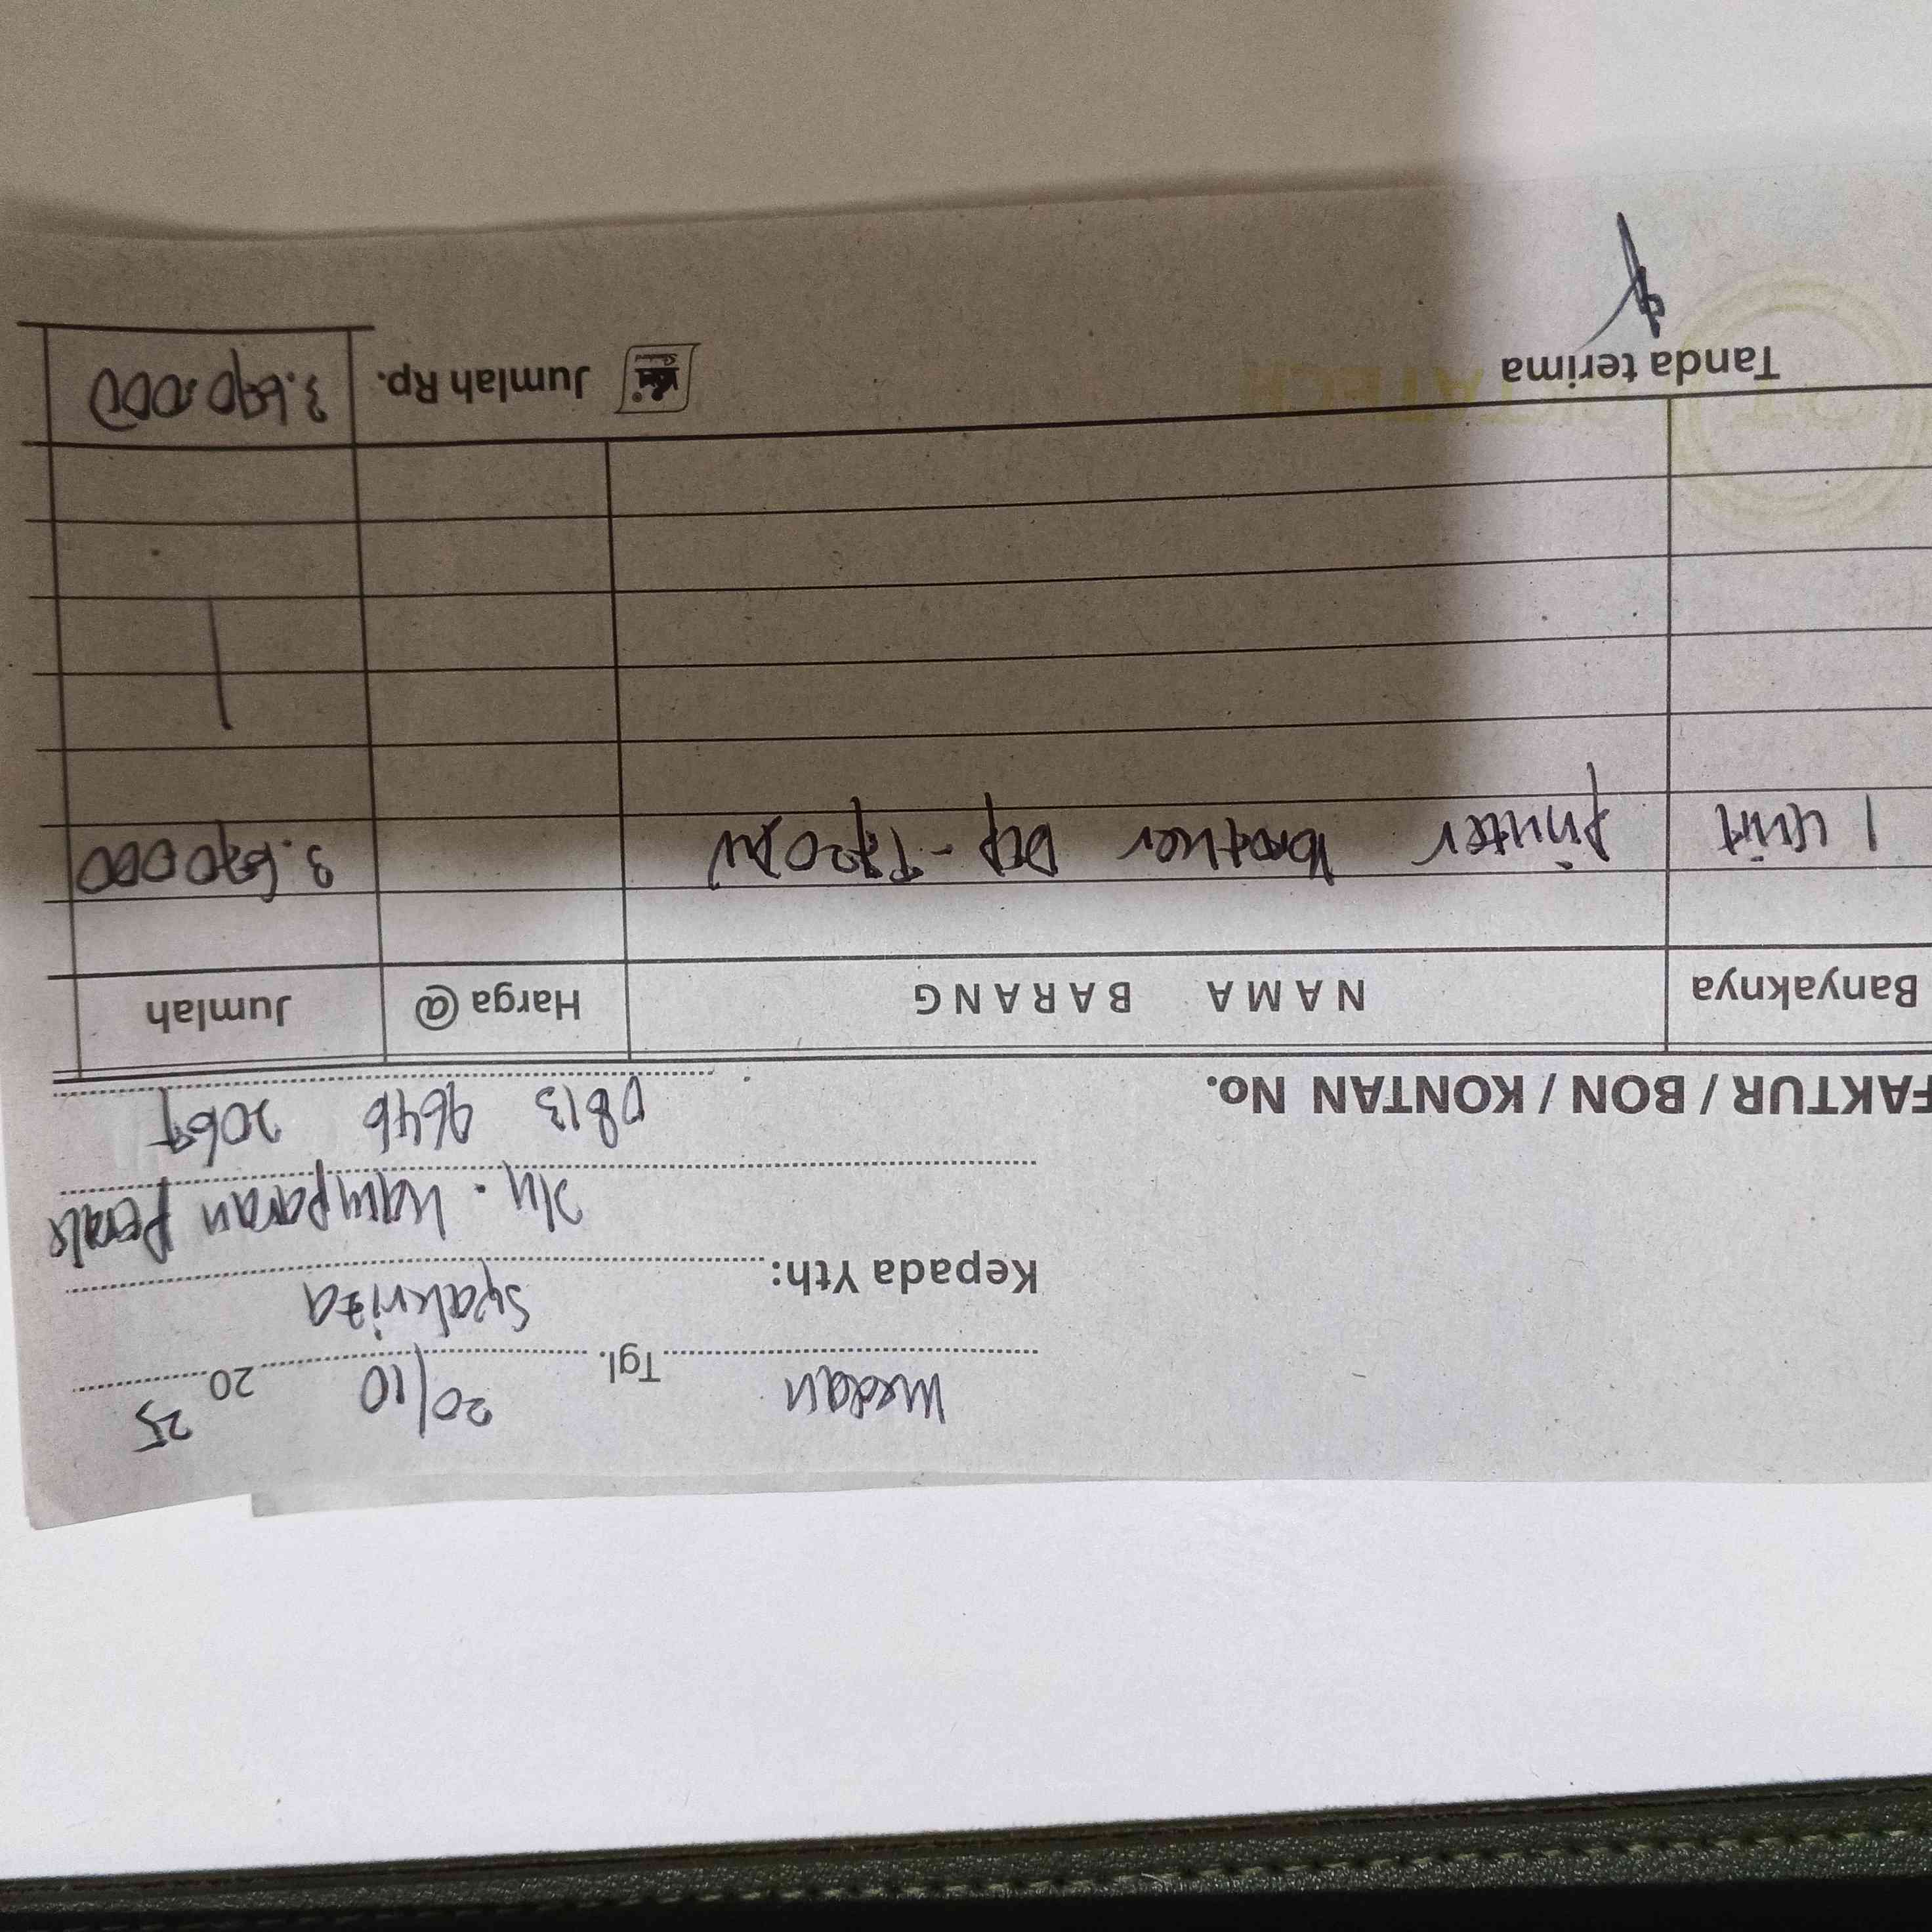 Medan Tgl. 20/10 2025
Kepada Yth: Syahriza
Jln. Hamparan Perak
0813 9646 2069
FAKTUR / BON / KONTAN No.
Banyaknya NAMA BARANG Harga @ Jumlah
1 Unit Printer brother DCP-T720DW 3.690.000
Tanda terima Jumlah Rp. 3.690.000